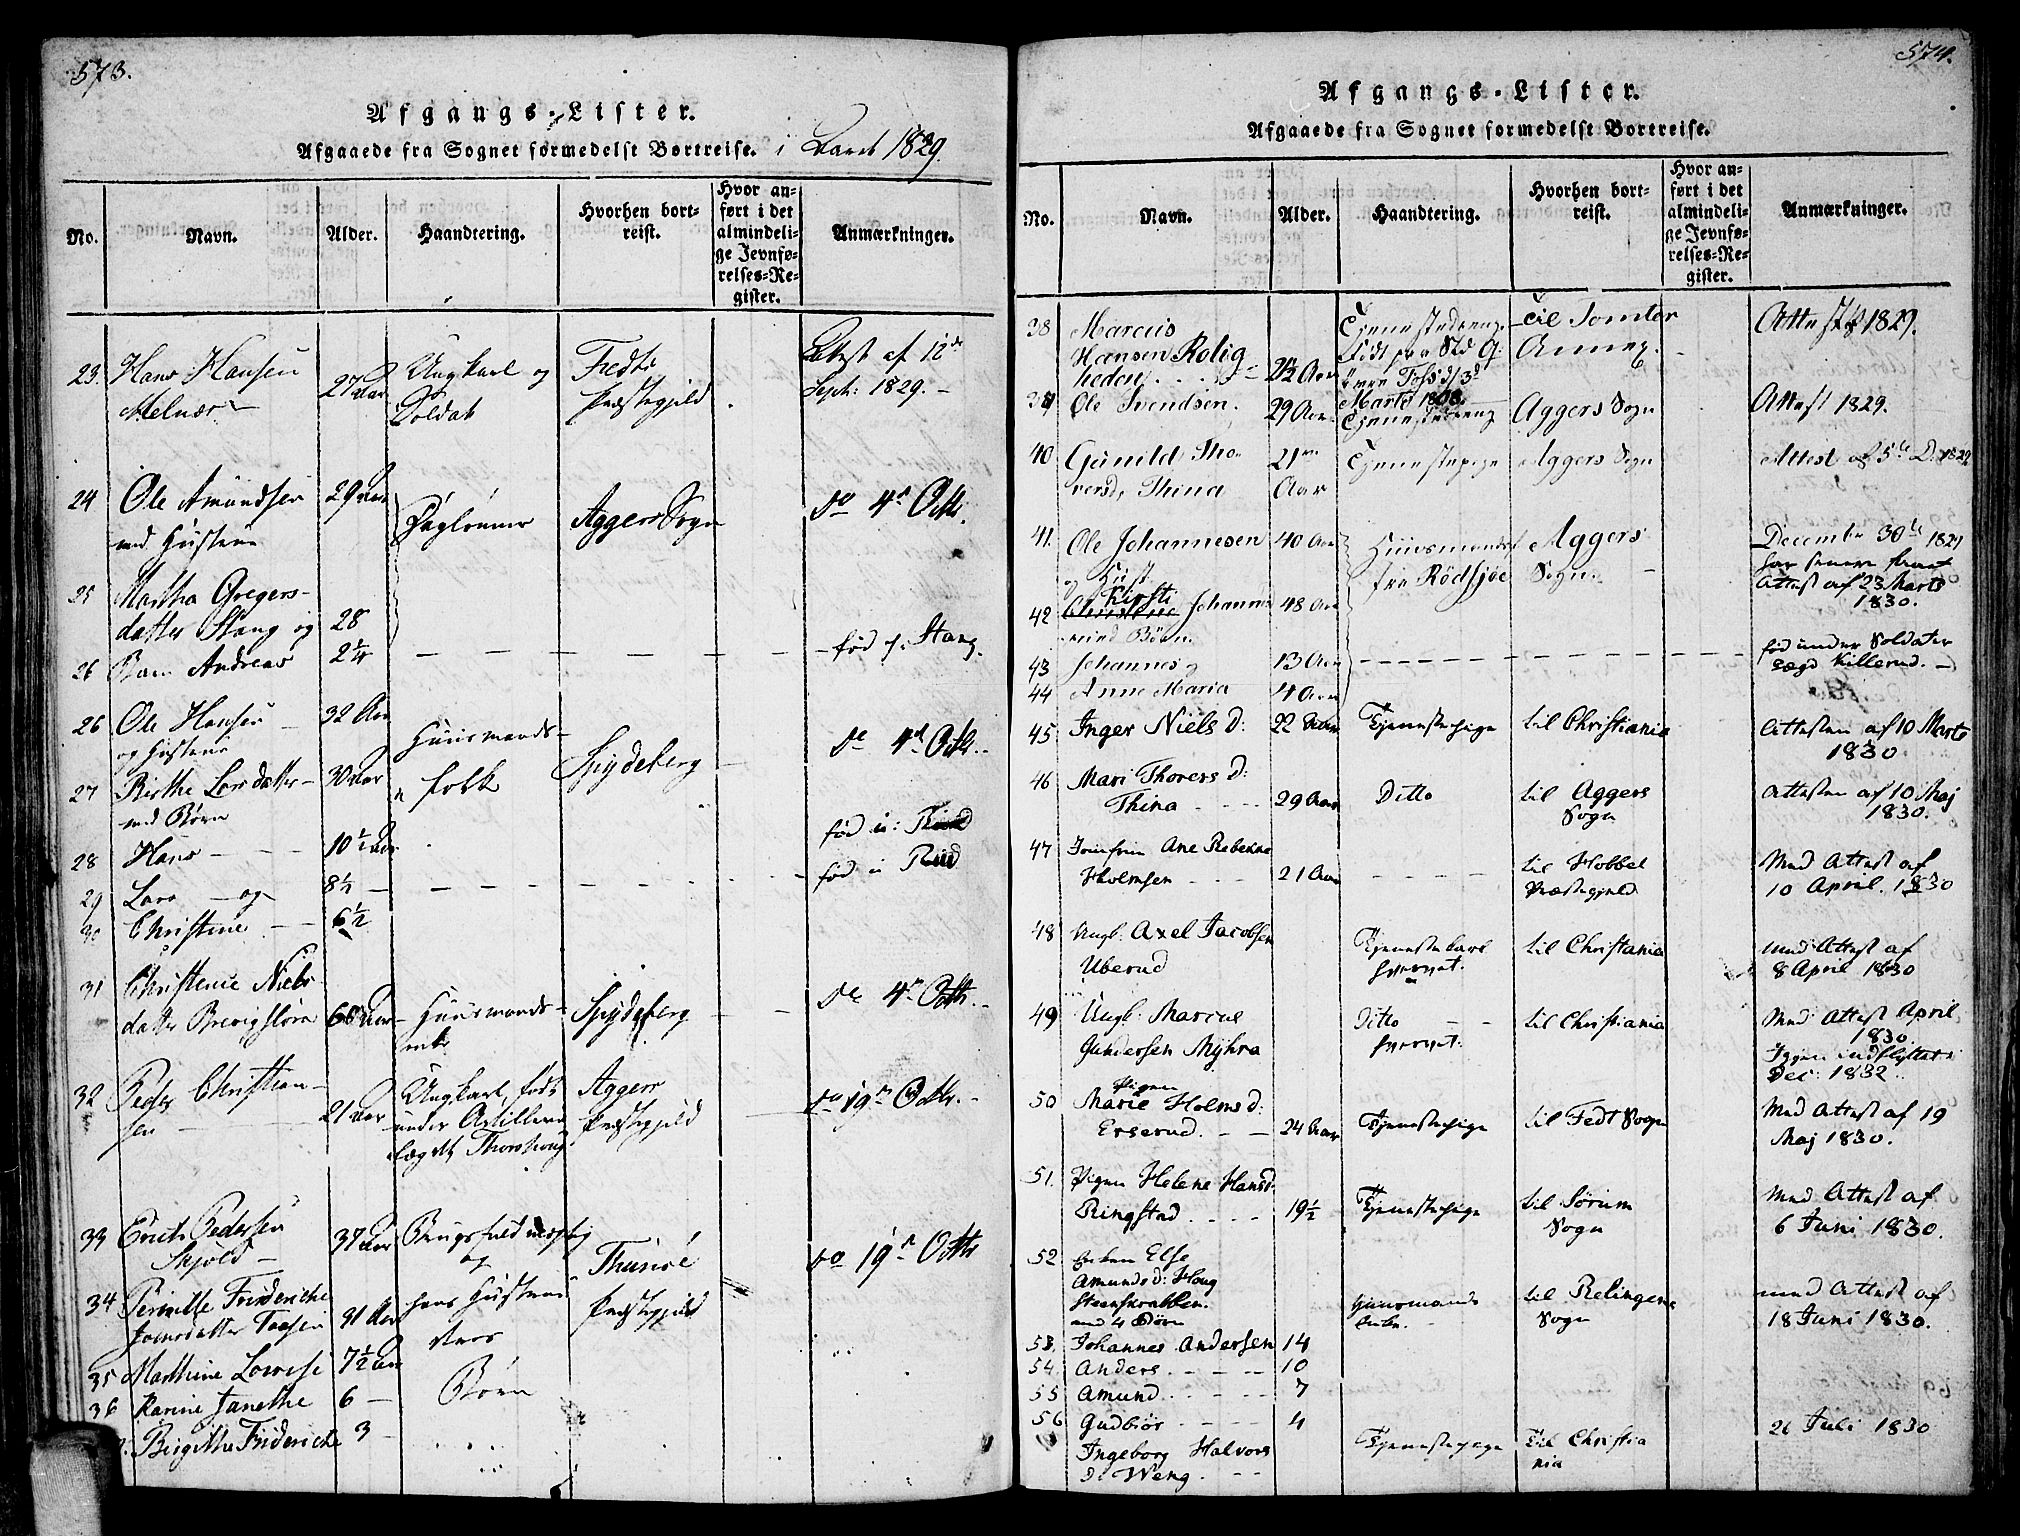 573.
Afgangs-Lister.
Afgaaede fra Sognet formedelst Bortreise. i Aaret 1829.
No. Navn. Alder. Haandtering. Hvorhen bortreist. Hvor anført i det almindelige Jevnførelses-Register. Anmærkninger.
23. Hans Hansen 27 Aar Ungkarl og Attest af 12te
Melnær Soldat Præstegjeld Sept: 1829.
24 Ole Amundsen 29 Aar Daglønner Aggers Sogn do 4de Octbr.
med Hustrue
25 Martha Gregers-
datter Stang og 28
26 Barn Andreas 2 1/4 — — — født p. Stang.
26 Ole Hansen 32 Aar Huusmands- Spydeberg do 4de Octbr.
og Hustrue
27 Birthe Larsdatter 30 Aar folk
med Børn
28 Hans 10 1/2 Aar
29 Lars — og 8 1/2 — — —
30 Christine 6 1/2
31 Christense Niels-
datter 60 Aar Huusmands- Spydeberg do 4de Octbr.
enke
32 Peder Christian- 21 Aar Ungkarl, født Aggers do 19de Octbr.
sen under Artilleri Præstegjeld
Lægdt
33 Erich Pedersen 37 Aar do 19de Octbr
Skjold og
34 Pernille Frideriche 41 Aar hans Hustrue Præstegjeld
35 Marthine Lovise 7 1/2 Aar
36 Karine Janethe 6 — Børn
Birgithe Frideriche 3
574.
Afgangs-Lister.
Afgaaede fra Sognet formedelst Bortreise.
No. Navn. Alder. Haandtering. Hvorhen bortreist. Hvor anført i det almindelige Jevnførelses-Register. Anmærkninger.
38 Marcus Tjenestedreng til Tomter Attest 1829.
Hansen Rolig Annex.
heden
Marts 1808.
39 Ole Svendsen. 29 Aar Tjenestedreng Aggers Sogn Attest 1829.
40 Gunild Tho- 21 Tjenestepige Aggers Sogn Attest af 5te D. 1829
rersd. Thina Aar
41. Ole Johannesen 40 Aar Huusmand Aggers December 30te 1829
og Hust. fra Rödsjöe Sogn har senere faaet
Kirsti Attest af 23 Marts
42 Johanns 48 Aar 1830.
med Börn.
43 Johannes og 13 Aar — — — fød under Soldater
Lægd Killerud.
44 Anne Maria 4 Aar
45 Inger Niels d: 22 Aar Tjenestepige til Christiania Attesten af 10 Marts
1830.
46 Mari Thorers d: Attesten af 10 Maj
Thina 29 Aar Ditto til Aggers 1830.
Sogn
47 Jomfrue Ane Rebekka Med Attest af
Holmsen 21 Aar til Hobbel 10 April. 1830
Præstegjeld
48 Ungk: Axel Jacobsen Tjenestekarl til Christiania med Attest af
Uberud 8 April 1830
49 Ungk: Marcus Ditto til Christiania Med Attest April
Gundersen Myhra 1830.
Igjen indflyttet i
Dec: 1832.
50 Pigen
Marie Holms d: til Fedt Sogn Med Attest af 19
Eeserud. 24 Aar Tjenestepige Maj 1830.
51. Pigen Helene Hansd. til Sörum Med Attest af
Ringstad 19 1/2 Tjenestepige Sogn 6 Juni 1830.
52 Enken Else
Amunds d: Houg Huusmands til Relingens med Attest af
Steenskrabben. Enke. Sogn 18 Juni 1830.
med 4 Börn
53. Johannes Andersen 14
54. Anders 10
55 Amund 7
56 Gudbiör 4
Ingeborg Halvors Tjenestepige til Christia 26 Juli 1830
d. Weng. nia